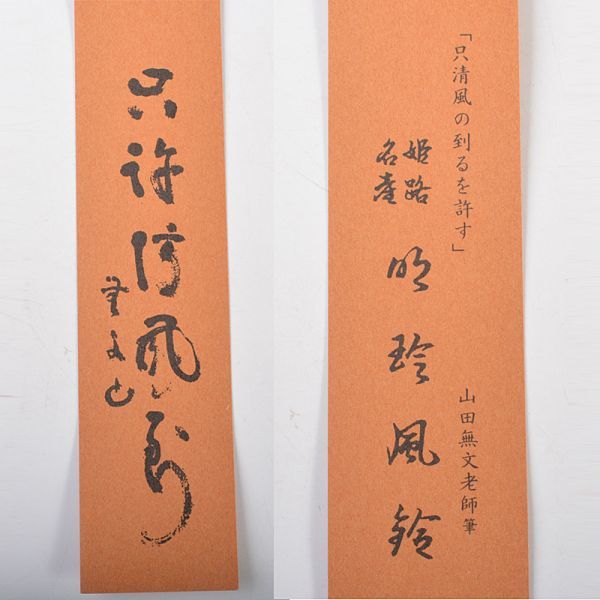 只許清風到
無文山
「只清風の到るを許す」
姫路
名産
明玲風鈴
山田無文老師筆